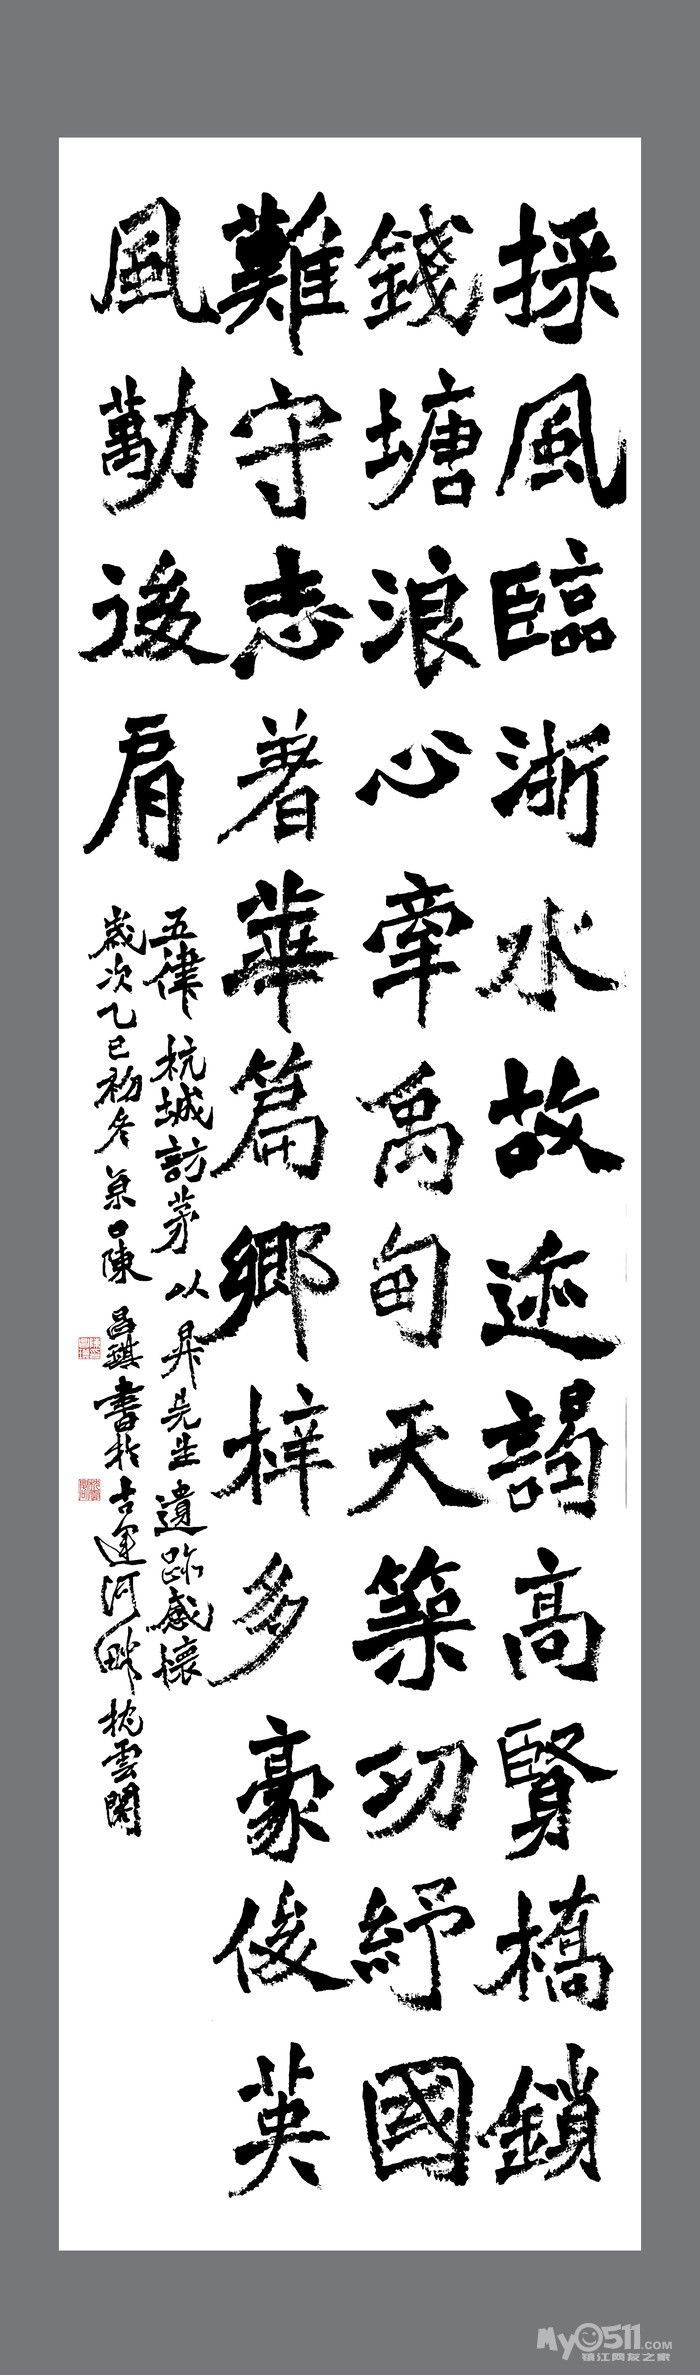 採風臨浙水故迹謁高賢橋鎖
錢塘浪心牽禹甸天築功紓國
難守志著華篇鄉梓多豪俊英
風勵後肩
五律 杭城訪茅以昇先生遺跡感懷
歲次乙巳初冬京口陳昌錤書於古運河畔枕雲閣
My0511.com
镇江网友之家